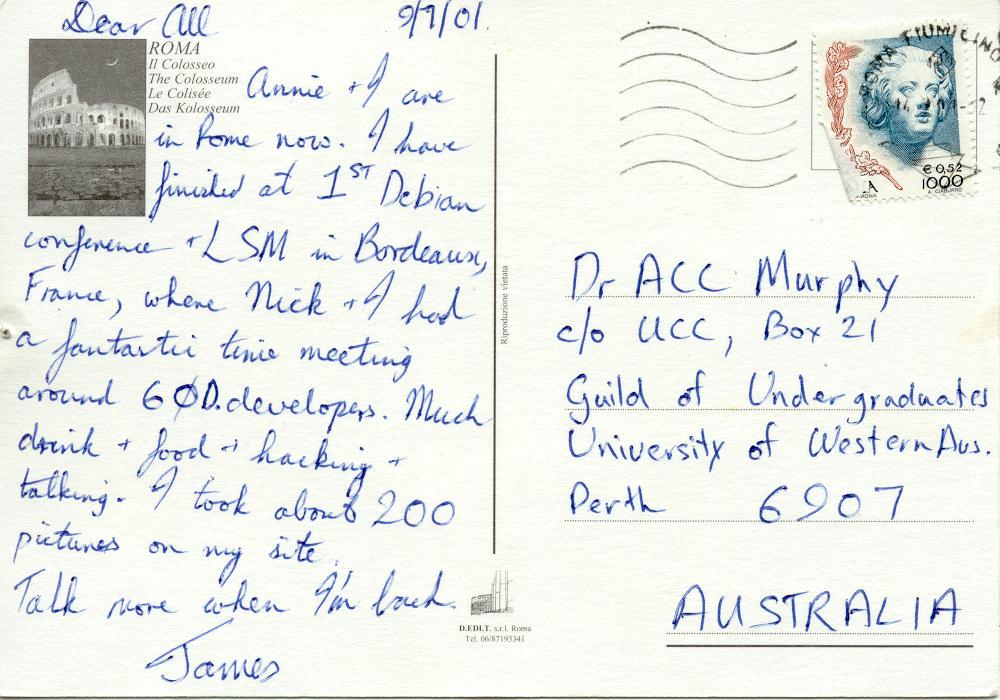 Dear All
9/7/01
ROMA
Il Colosseo
The Colosseum
Le Colisée
Das Kolosseum
Annie + I are
in Rome now. I have
finished at 1ST Debian
conference + LSM in Bordeaux,
France, where Nick + I had
a fantastic time meeting
around 60 D.developers. Much
drink + food + hacking +
talking. I took about 200
pictures on my site.
Talk more when I'm back.
James
Riproduzione vietata
D.EDI.T. s.r.l. Roma
Tel. 06/87193341
ROMA FIUMICINO
€ 0,52
1000
ROMA
Dr ACC Murphy
c/o UCC, Box 21
Guild of Undergraduates
University of Western Aus.
Perth 6907
AUSTRALIA